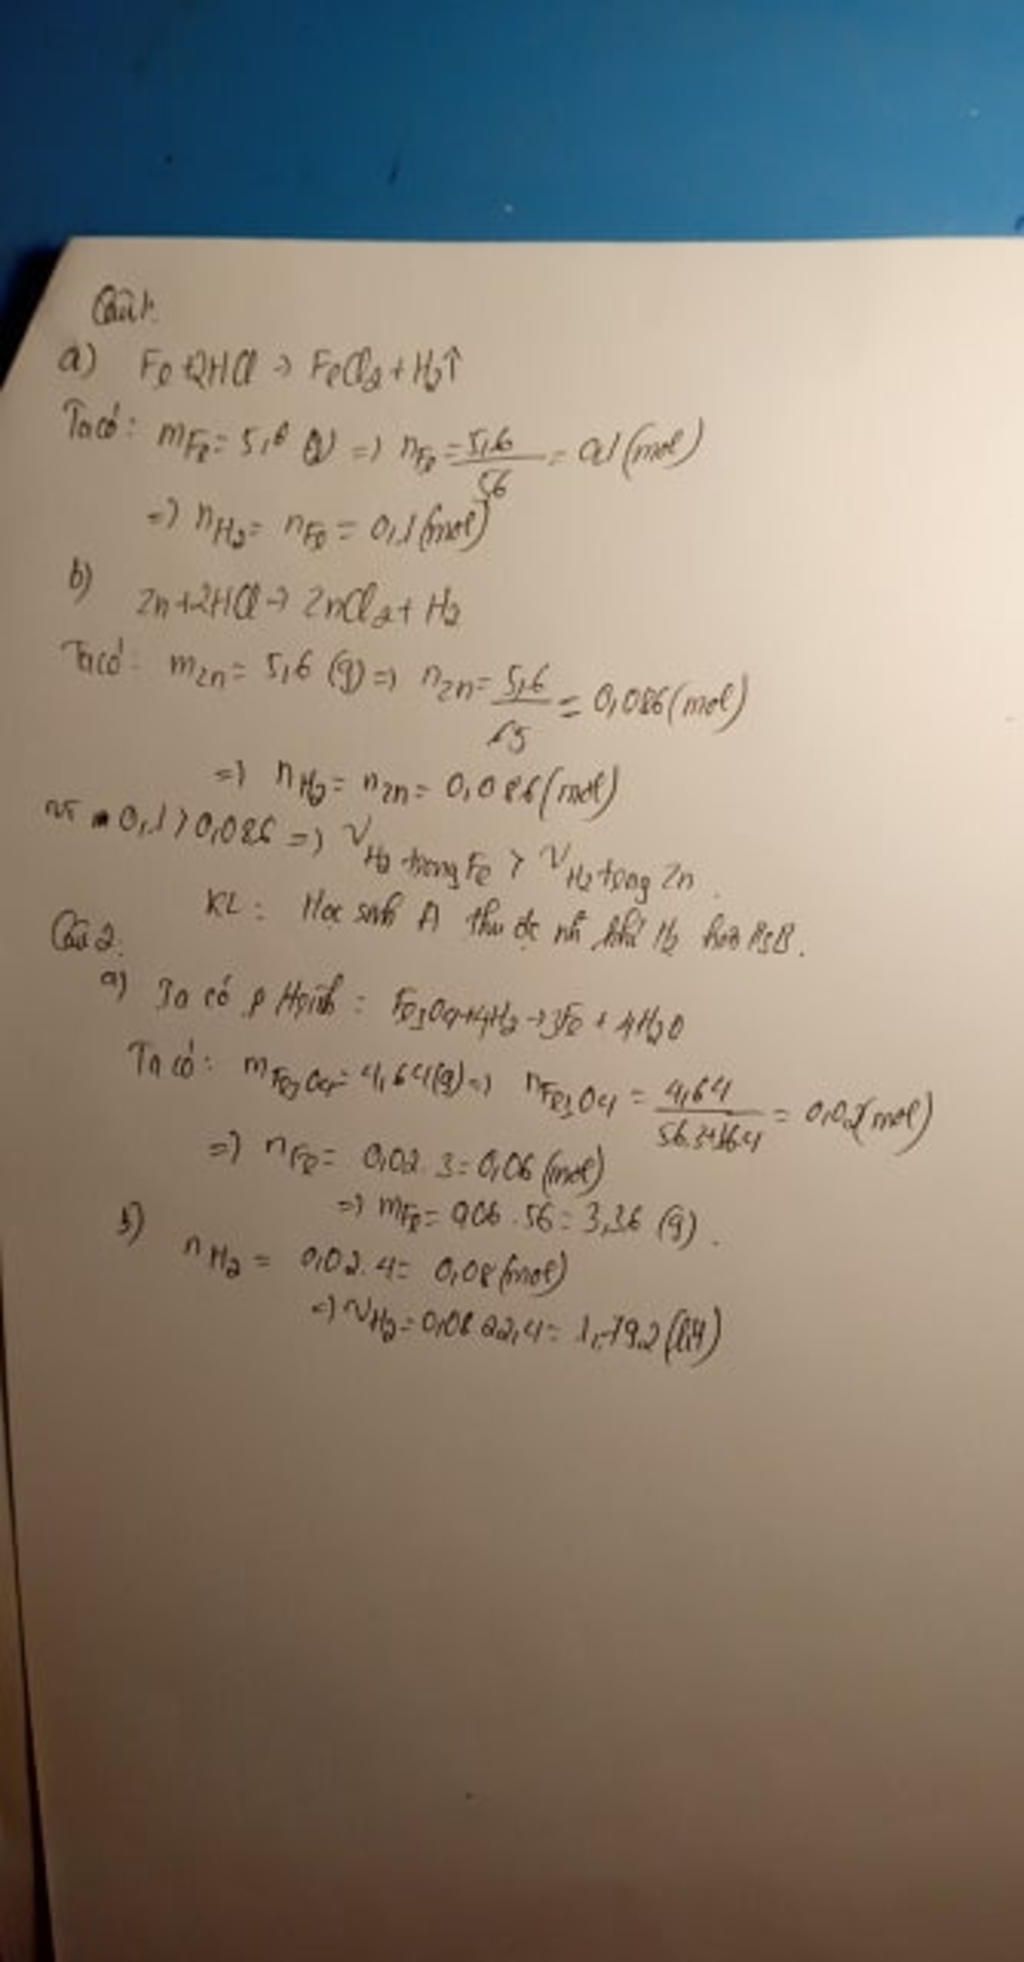 Câu 1:
a) Fe + 2HCl → FeCl2 + H2↑
Ta có: mFe = 5,6 (g) => nFe = 5,6/56 = 0,1 (mol)
=> nH2 = nFe = 0,1 (mol)
b) Zn + 2HCl → ZnCl2 + H2
Ta có: mZn = 5,6 (g) => nZn = 5,6/65 = 0,086 (mol)
=> nH2 = nZn = 0,086 (mol)
0,1 > 0,086 => VH2 trong Fe > VH2 trong Zn.
KL: Học sinh A thu đc nh khí H2 hơn HsB.
Câu 2:
a) Ta có p : Fe3O4 + 4H2 → 3Fe + 4H2O
Ta có: mFe3O4 = 4,64 (g) => nFe3O4 = 4,64/56.3+16.4 = 0,02 (mol)
=> nFe = 0,02 . 3 = 0,06 (mol)
=> mFe = 0,06 . 56 = 3,36 (g).
b) nH2 = 0,02 . 4 = 0,08 (mol)
=> VH2 = 0,08 . 22,4 = 1,792 (lít)